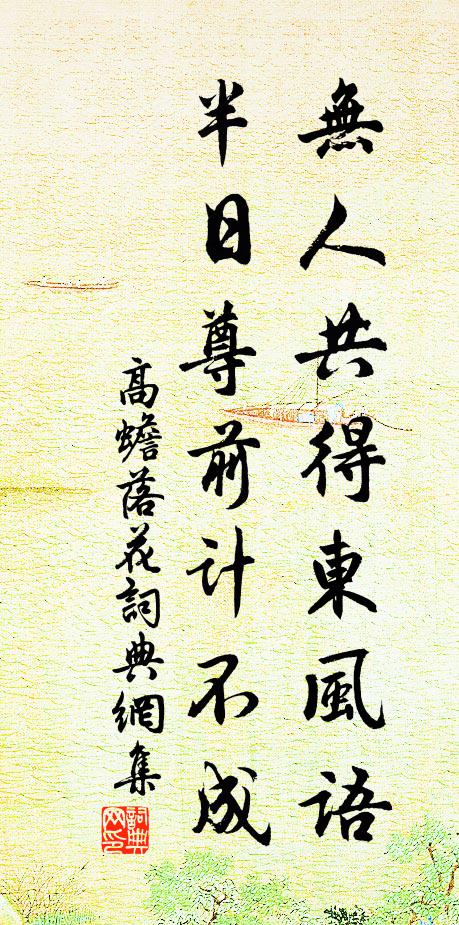 無人共得東風語
半日尊前計不成
高蟾落花詞典網集
詞典
网印